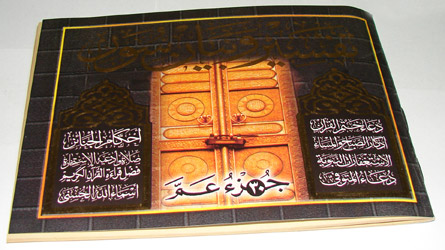 دعاء ختم القرآن
أذكار الصباح والمساء
الاستغفارات النبوية
دعاء المتوفى
أحكام الجنائز
صلاة ودعاء الاستخارة
فضل قراءة القرآن الكريم
أسماء الله الحسنى
جزء عم
٣٠